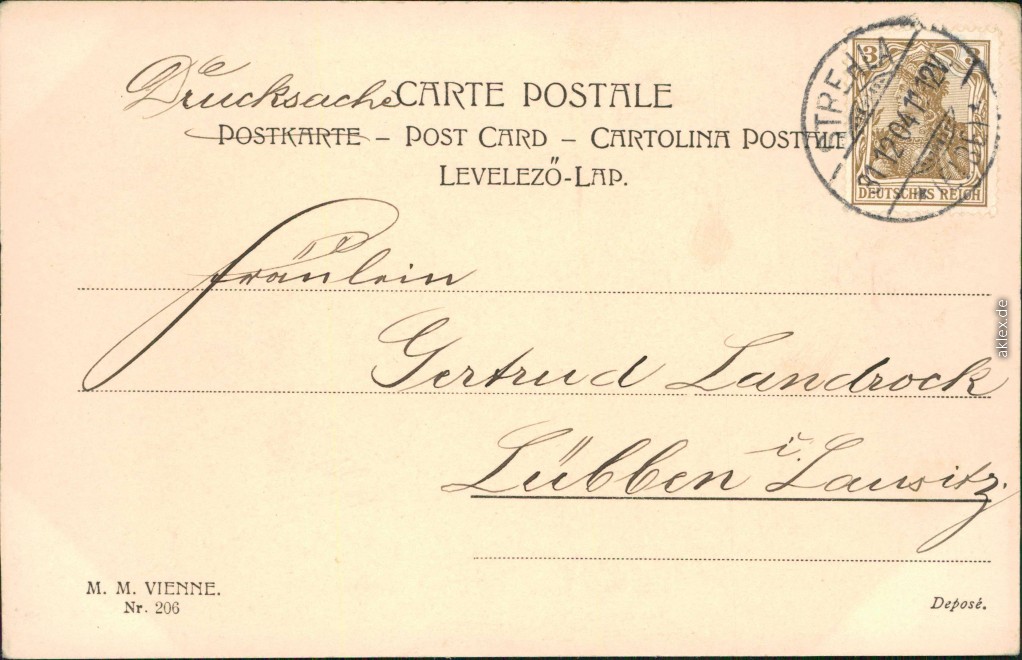 Drucksache CARTE POSTALE
POSTKARTE – POST CARD – CARTOLINA POSTALE
LEVELEZŐ-LAP.
3 3
DEUTSCHES REICH
STREHLA
31.12.04.11-12V.
Fräulein
Gertrud Landrock
Lübben i. Lausitz.
M. M. VIENNE.
Nr. 206
Deposé.
aklex.de